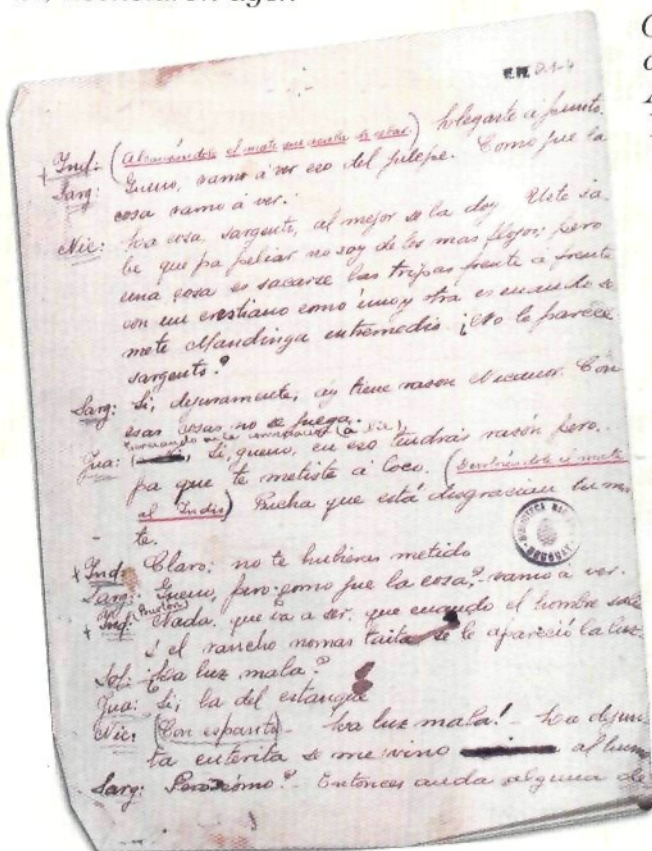 C
d
F.H. D.1-4
+ Ind: (Alcanzándole el mate que acaba de cebar.) Llegaste a punto.
Sarg: Gueno, vamo á ver eso del julepe. Como jue la
cosa vamo á ver.
Nic: La cosa, sargento, al mejor se la doy. Uste sa-
be que pa peliar no soy de los mas flojos; pero
una cosa es sacarse las tripas frente á frente
con un crestiano como uno y otra es cuando se
mete Mandinga entremedio. ¿No le parece
sargento?
Sarg: Si, dejuramente; ay tiene rason Nicanor. Con
esas cosas no se juega.
Jua: (á Nic) Si, gueno, en eso tendrás razón pero..
pa que te metiste á Loco. (Devolviéndole el mate
al Indio) Pucha que está disgraciau tu ma-
te.
BIBLIOTECA NACIONAL
URUGUAY
+ Ind: Claro; no te hubieras metido
Sarg: Gueno, pero como jue la cosa?, vamo á ver.
+ Ind: (Burlón) Nada, que va a ser, que cuando el hombre salió
el rancho nomas taita se le apareció la luz.
Sol: ¿La luz mala?
Jua: Si, la del estanque
Nic: (Con espanto) - La luz mala! - La dejun-
ta enterita se me vino al humo
Sarg: Pero cómo? - Entonces anda alguna de